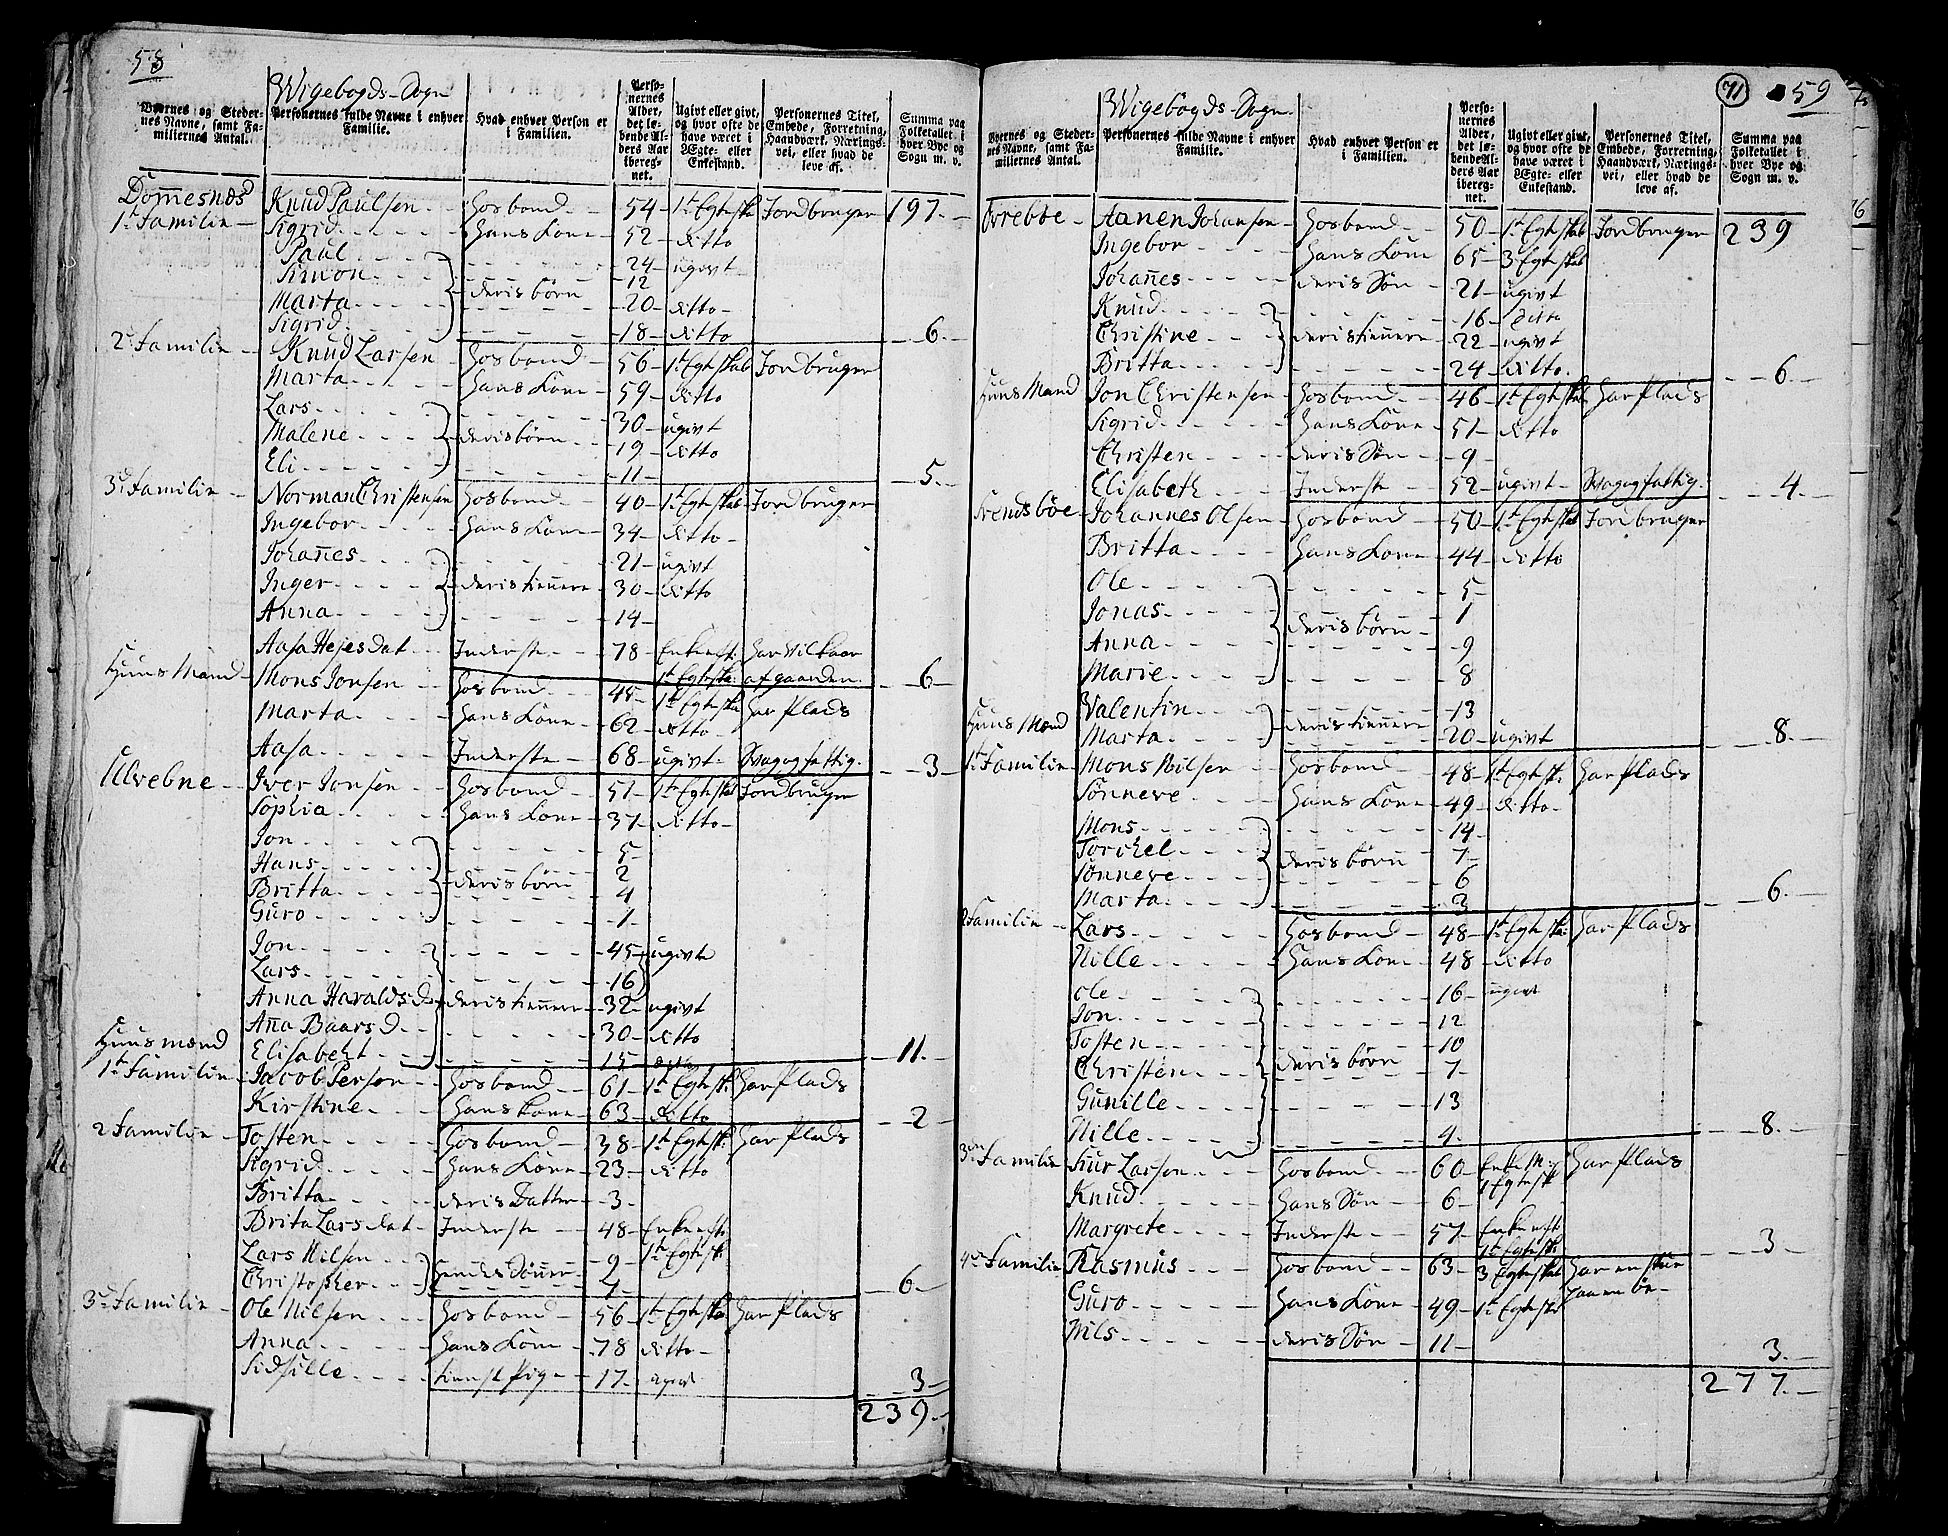 58
Wigebøgds-Sogn
Byernes og Stedernes Navne, samt Familiernes Antal.
Personernes fulde Navne i enhver Familie.
Hvad enhver Person er i Familien.
Personernes Alder, det løbende Alders Aar iberegnet.
Ugivt eller givt, og hvor ofte de have været i Ægte- eller Enkestand.
Personernes Titel, Embede, Forretning, Haandværk, Næringsvei, eller hvad de leve af.
Summa paa Folketallet i hver Bye og Sogn m. v.
Dom̅esnæs Knud Paulsen Hosbond 54 1te Egteska Jordbruger 197
1te Familie Sigrid Hans Kone 52 ditto
Paul 24 ugivt
Simon 12
Marta deris börn 20 ditto
Sigrid 18 ditto 6
2de Familie Knud Larsen Hosbond 56 1te Egteskab Jordbruger
Marta Hans Kone 59 ditto
Lars 30 ugivt
Malene deris börn 19 ditto
Eli 11 5
3de Familie Norman Christensen Hosbond 40 1te Egteskab Jordbruger
Ingebor Hans Kone 34 ditto
Johan̅es 21 ugivt
Inger deris tienere 30 ditto
Anna 14
Aasa Hejesdat Inderste 78 Enke efter 1te Egteska: Har Vilkaar af gaarden. 6
Huus Mænd Mons Jonsen Hosbond 45 1te Egteska Har Plads
Marta Hans Kone 62 ditto
Aasa Inderste 68 ugivt Svag og fattig. 3
Ulvebne Iver Jonsen Hosbond 51 1te Egteskab Jordbruger
Sophia Hans Kone 37 ditto
Jon 5
Hans 2
Britta deris börn 4
Guro 1
Jon 45 ugivte
Lars 16
Anna Haralds D deris tienere 32 ugivt
An̅a Baars D 30 ditto
Elisabeht 15 11
Huusmænd
1te Familie Jacob Persen Hosbond 61 1te Egtesk: Har Plads
Kirstine Hans Kone 63 ditto 2
2 Familie Tosten Hosbond 38 1te Egtesk: Har Plads
Sigrid Hans Kone 23 ditto
Britta deris Datter 3
Brita Larsdat Inderste 48 Enke efter 1te Egtesk:
Lars Nilsen 9
Christopher Hendes Sönner 6
3de Familie Ole Nilsen Hosbond 56 1te Egteska Har Plads
Anna Hans Kone 78 ditto
Sidsille tienst Pige 17 ugivt 3
239
71 59
Wigebøgds-Sogn
Byernes og Stedernes Navne, samt Familiernes Antal.
Personernes fulde Navne i enhver Familie.
Hvad enhver Person er i Familien.
Personernes Alder, det løbende Alders Aar iberegnet.
Ugivt eller givt, og hvor ofte de have været i Ægte- eller Enkestand.
Personernes Titel, Embede, Forretning, Haandværk, Næringsvei, eller hvad de leve af.
Summa paa Folketallet i hver Bye og Sogn m. v.
Aanen Johansen Hosbond 50 1te Egteskab Jordbruger 239
Ingebor Hans Kone 65 3 Egteskab
Johan̅es deris Sön 21 ugivt
Knud 16 ditto
Christine deris tienere 22 ugivt
Britta 24 ditto. 6
Huus Mænd Jon Christensen Hosbond 46 1te Egteska Har Plads
Sigrid Hans Kone 51 ditto
Christen deris Sön 9
Elisabeth Inderste 52 ugivt Svag og fattig. 4
Svendsböe Johannes Olsen Hosbond 50 1te Egteskab Jordbruger
Britta Hans Kone 44 ditto
Ole 5
Jonas 1
Anna deris börn 9
Marie 8
Valentin 13
Marta deris tienere 20 ugivt 8
Huus Mænd
1te Familie Mons Nilsen Hosbond 48 1te Egtesk. Har Plads
Sönneve Hans Kone 49 ditto
Mons 14
Torchel deris börn 7
Sönneve 6
Marta 3 6
2 Familie Lars Hosbond 48 1te Egteska: Har Plads
Nille Hans Kone 48 ditto
Ole 16 ugivt
Jon 12
Tosten 10
Christen deris börn 7
Gunille 13
Nille 4 8
3de Familie Siur Larsen Hosbond 60 Enke M. 1 Egtesk Har Plads
Knud Hans Sön 6
Margrete Inderste 57 Enke efter 1te Egtesk: 3
4de Familie Rasmus Hosbond 63 3 Egteskab Har en
Guro Hans Kone 49 1te Egteska
Nils deris Sön 11 3
277